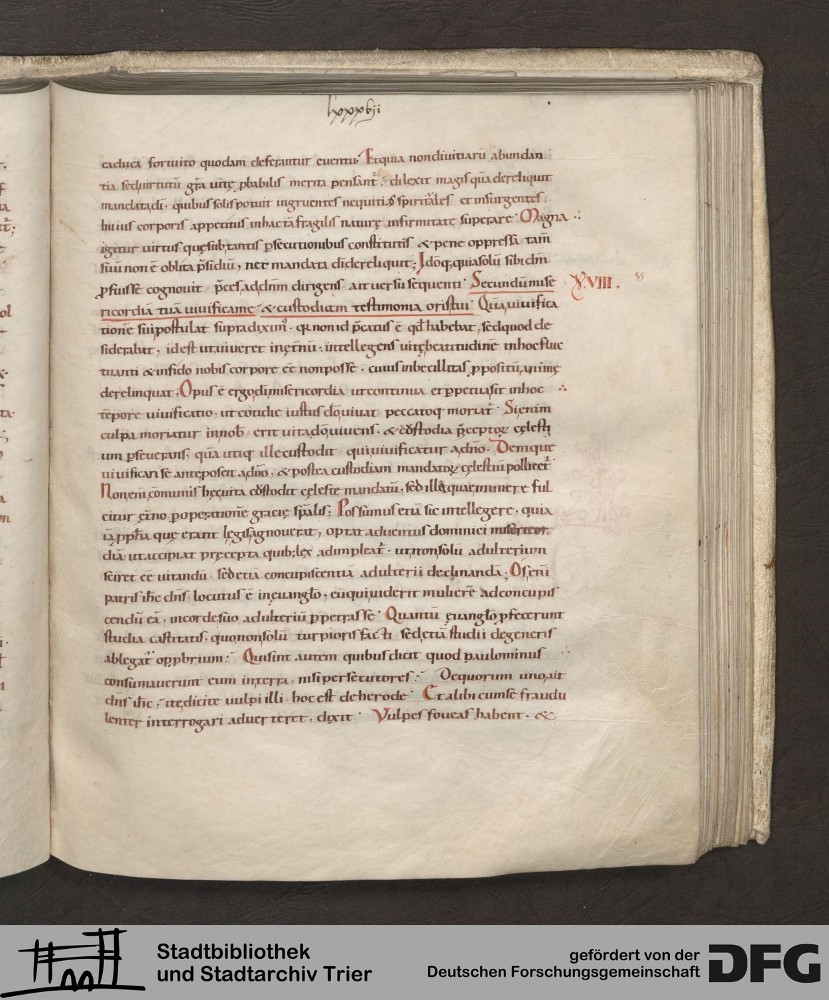 lxxxvij
caduca fortuito quodam deferantur euentu. Et quia non diuitiarū abundan
tia sed uirtutū gr̄a uitę ꝓbabilis merita pensant᷑. dilexit magis quā dereliquit
mandata dī. quibus solis potuit ingruentes nequitię spiritales et insurgentes
huius corporis appetitus in hac tā fragilis naturę infirmitate superare. Magna
igitur uirtus quę sub tantis ꝑsecutionibus constitutis & pene oppressa tam̄
suū non ē oblita p̄sidiū, nec mandata dī dereliquit; Idōq; quia solū sibi dn̄m
ꝓfuisse cognouit p̄ces ad dn̄m dirigens ait uersu sequenti. Secundū mise
XVIII.
ricordiā tuā uiuifica me & custodiam testimonia oris tui. Quā uiuifica
tionē sui postulat supradixim᷒. qui non id p̄catus ē qd̄ habebat, sed quod de
siderabat, id est ut uiueret in ęt̄nū. intellegens uitę beatitudinē in hoc fluc
tuanti & infido nobis corpore eē non posse. cuius inbecillitas ꝓpositū animę
derelinquat. Opus ē ergo dī misericordia ut continua et ꝑpetua sit in hoc
tēpore uiuificatio. ut cotidie iustus dō uiuat peccatoq; moriat᷑. Si enim
culpa moriatur in nob̄ erit uita dō uiuens. & custodia p̄ceptoꝝ cęlesti
um ꝑseuerans, quā utiq; ille custodit qui uiuificatur a dn̄o. Denique
uiuificari se anteposcit a dn̄o, & postea custodiam mandatoꝝ cęlestiū pollicet᷑
Non enī comunis hęc uita custodit cęleste mandatū, sed illa quae munere ful
citur ęt̄no ꝑ operationē gracię sp̄alis; Possumus etiā sic intellegere, quia
iā ꝓph̄a quę erant legis agnouerat, optat aduentus dominici misericor
diā ut accipiat pręcepta quib; lex adimpleat᷑. ut non solū adulterium
sciret eē uitandū sed etiā concupiscentiā adulterii declinandā; Os enī
patris ih̄c dn̄s locutus ē in euanglo, eū qui uiderit mulierē ad concupis
cendū eā, in corde suo adulteriū ꝑpetrasse. Quantū ęuanglo ꝓfecerunt
studia castitatis, quo non solū turpioris facti sed etiā studii degeneris
ablegat᷑ opprobrium. Qui sint autem quibus dicit quod paulominus
consumauerunt eum in terra. nisi persecutores. De quorum uno ait
dn̄s ih̄c, ite dicite uulpi illi. hoc est de herode. Et alibi cum se fraudu
lenter interrogari aduerteret, dixit. Vulpes foueas habent. &
Stadtbibliothek
und Stadtarchiv Trier
gefördert von der
Deutschen Forschungsgemeinschaft
DFG